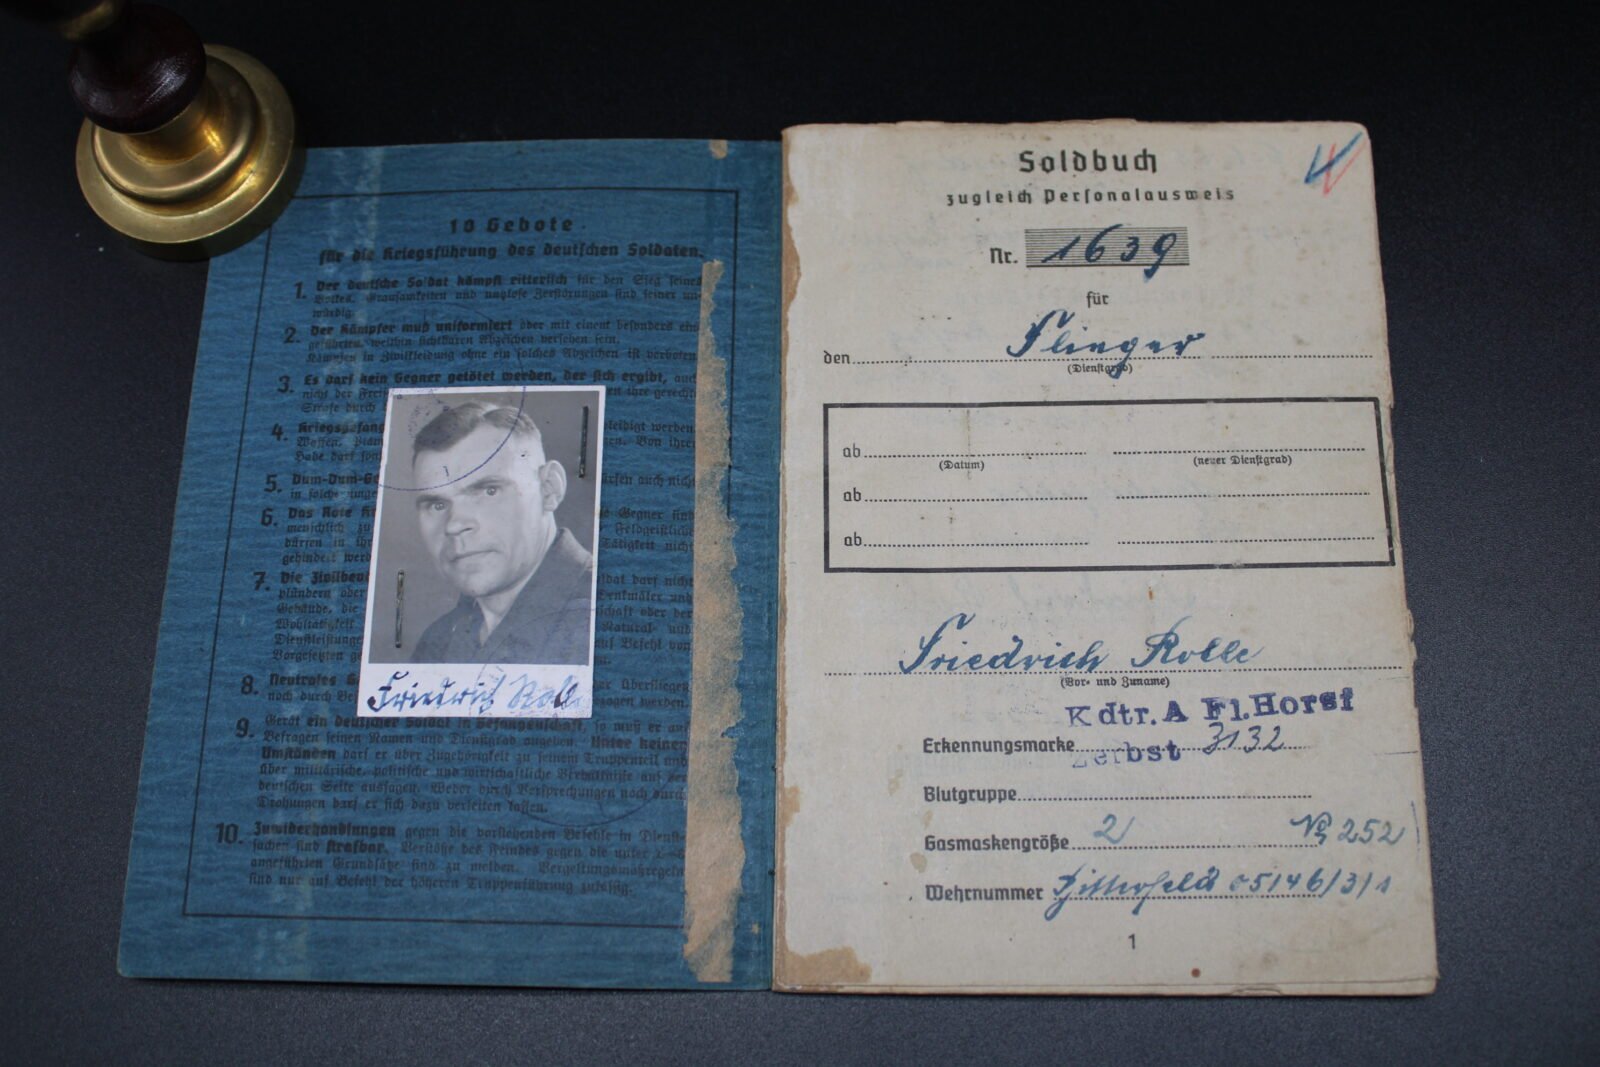 10 Gebote
für die Kriegsführung des deutschen Soldaten.
1. Der deutsche Soldat kämpft ritterlich für den Sieg seines
Volkes. Grausamkeiten und nutzlose Zerstörungen sind seiner un-
würdig.
2. Der Kämpfer muß uniformiert oder mit einem besonders ein-
geführten, weithin sichtbaren Abzeichen versehen sein.
Kämpfen in Zivilkleidung ohne ein solches Abzeichen ist verboten.
3. Es darf kein Gegner getötet werden, der sich ergibt, auch
nicht der Frei en ihre gerechte
Strafe durch
4. Kriegsgefang eleidigt werden.
Waffen, Plän Von ihrer
Habe darf son
5. Dum-Dum-Ge ürfen auch nicht
in solche umge
6. Das Rote Gegner sind
menschlich zu Feldgeistliche
dürfen in ihr Tätigkeit nicht
gehindert werd
7. Die Zivilbevö dat darf nicht
plündern oder enkmäler und
Gebäude, die schaft oder der
Wohltätigkeit Natural- und
Dienstleistunge auf Befehl von
Vorgesetzten ge
8. Neutrales G er Überfliegen
noch durch Be zogen werden.
9. Gerät ein deutscher Soldat in Gefangenschaft, so muß er auf
Befragen seinen Namen und Dienstgrad angeben. Unter keinen
Umständen darf er über Zugehörigkeit zu seinem Truppenteil und
über militärische, politische und wirtschaftliche Verhältnisse auf der
deutschen Seite aussagen. Weder durch Versprechungen noch durch
Drohungen darf er sich dazu verleiten lassen.
10. Zuwiderhandlungen gegen die vorstehenden Befehle in Dienst-
sachen sind strafbar. Verstöße des Feindes gegen die unter 1-8
angeführten Grundsätze sind zu melden. Vergeltungsmaßregeln
sind nur auf Befehl der höheren Truppenführung zulässig.
Friedrich Rolle
Soldbuch
zugleich Personalausweis
Nr. 1639
für
den Flieger
(Dienstgrad)
ab
(Datum) (neuer Dienstgrad)
ab
ab
Friedrich Rolle
(Vor- und Zuname)
Kdtr. A Fl. Horst
Erkennungsmarke Zerbst 3132
Blutgruppe
Gasmaskengröße 2 No 252
Wehrnummer Bitterfeld 05/46/3/1
1